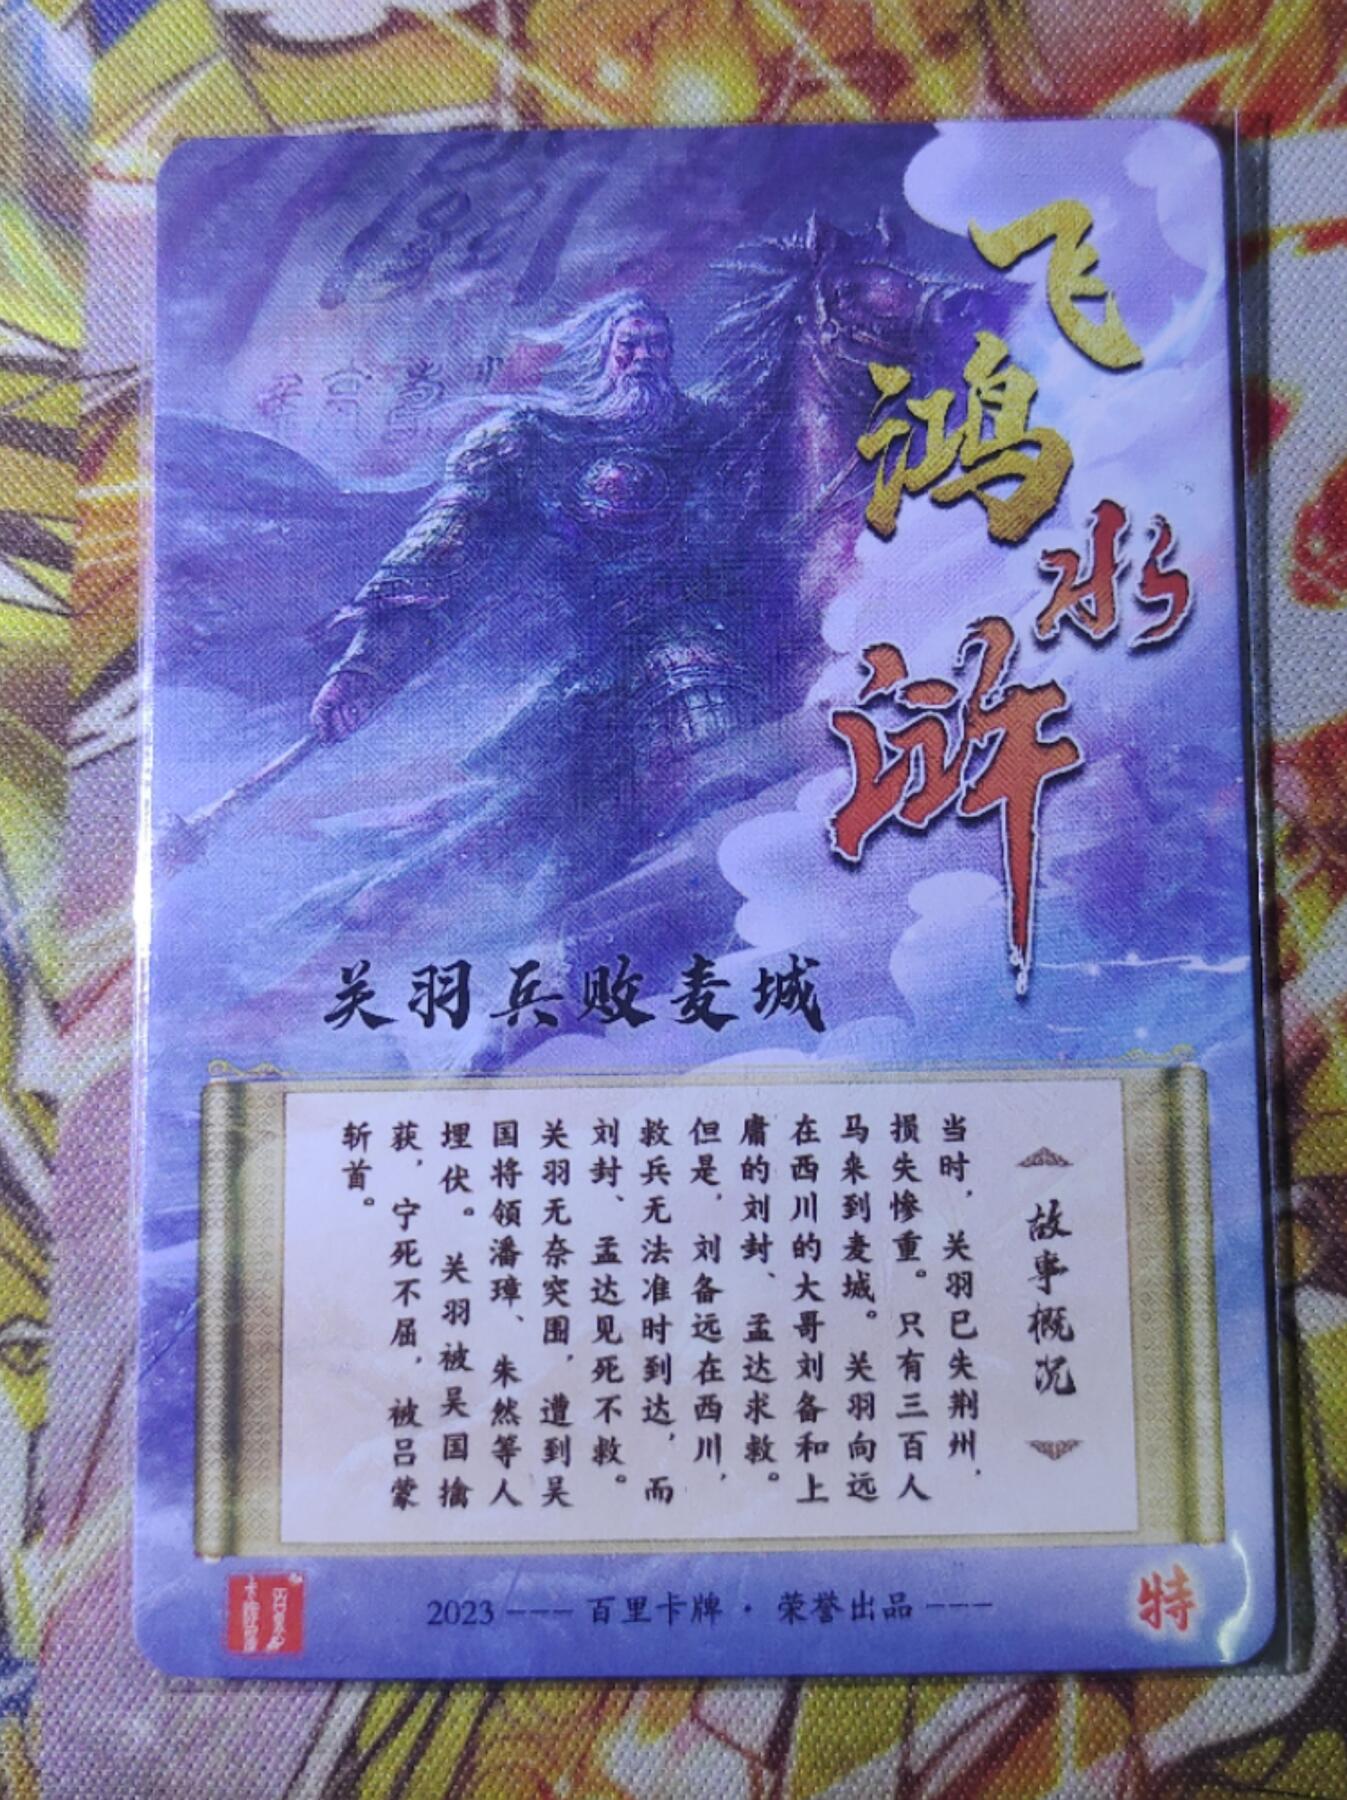 飞鸿
水浒
关羽兵败麦城
故事概况
当时，关羽已失荆州，
损失惨重。只有三百人
马来到麦城。关羽向远
在西川的大哥刘备和上
庸的刘封、孟达求救。
但是，刘备远在西川，
救兵无法准时到达，而
刘封、孟达见死不救。
关羽无奈突围，遭到吴
国将领潘璋、朱然等人
埋伏。关羽被吴国擒
获，宁死不屈，被吕蒙
斩首。
2023 --- 百里卡牌 · 荣誉出品 ---
特